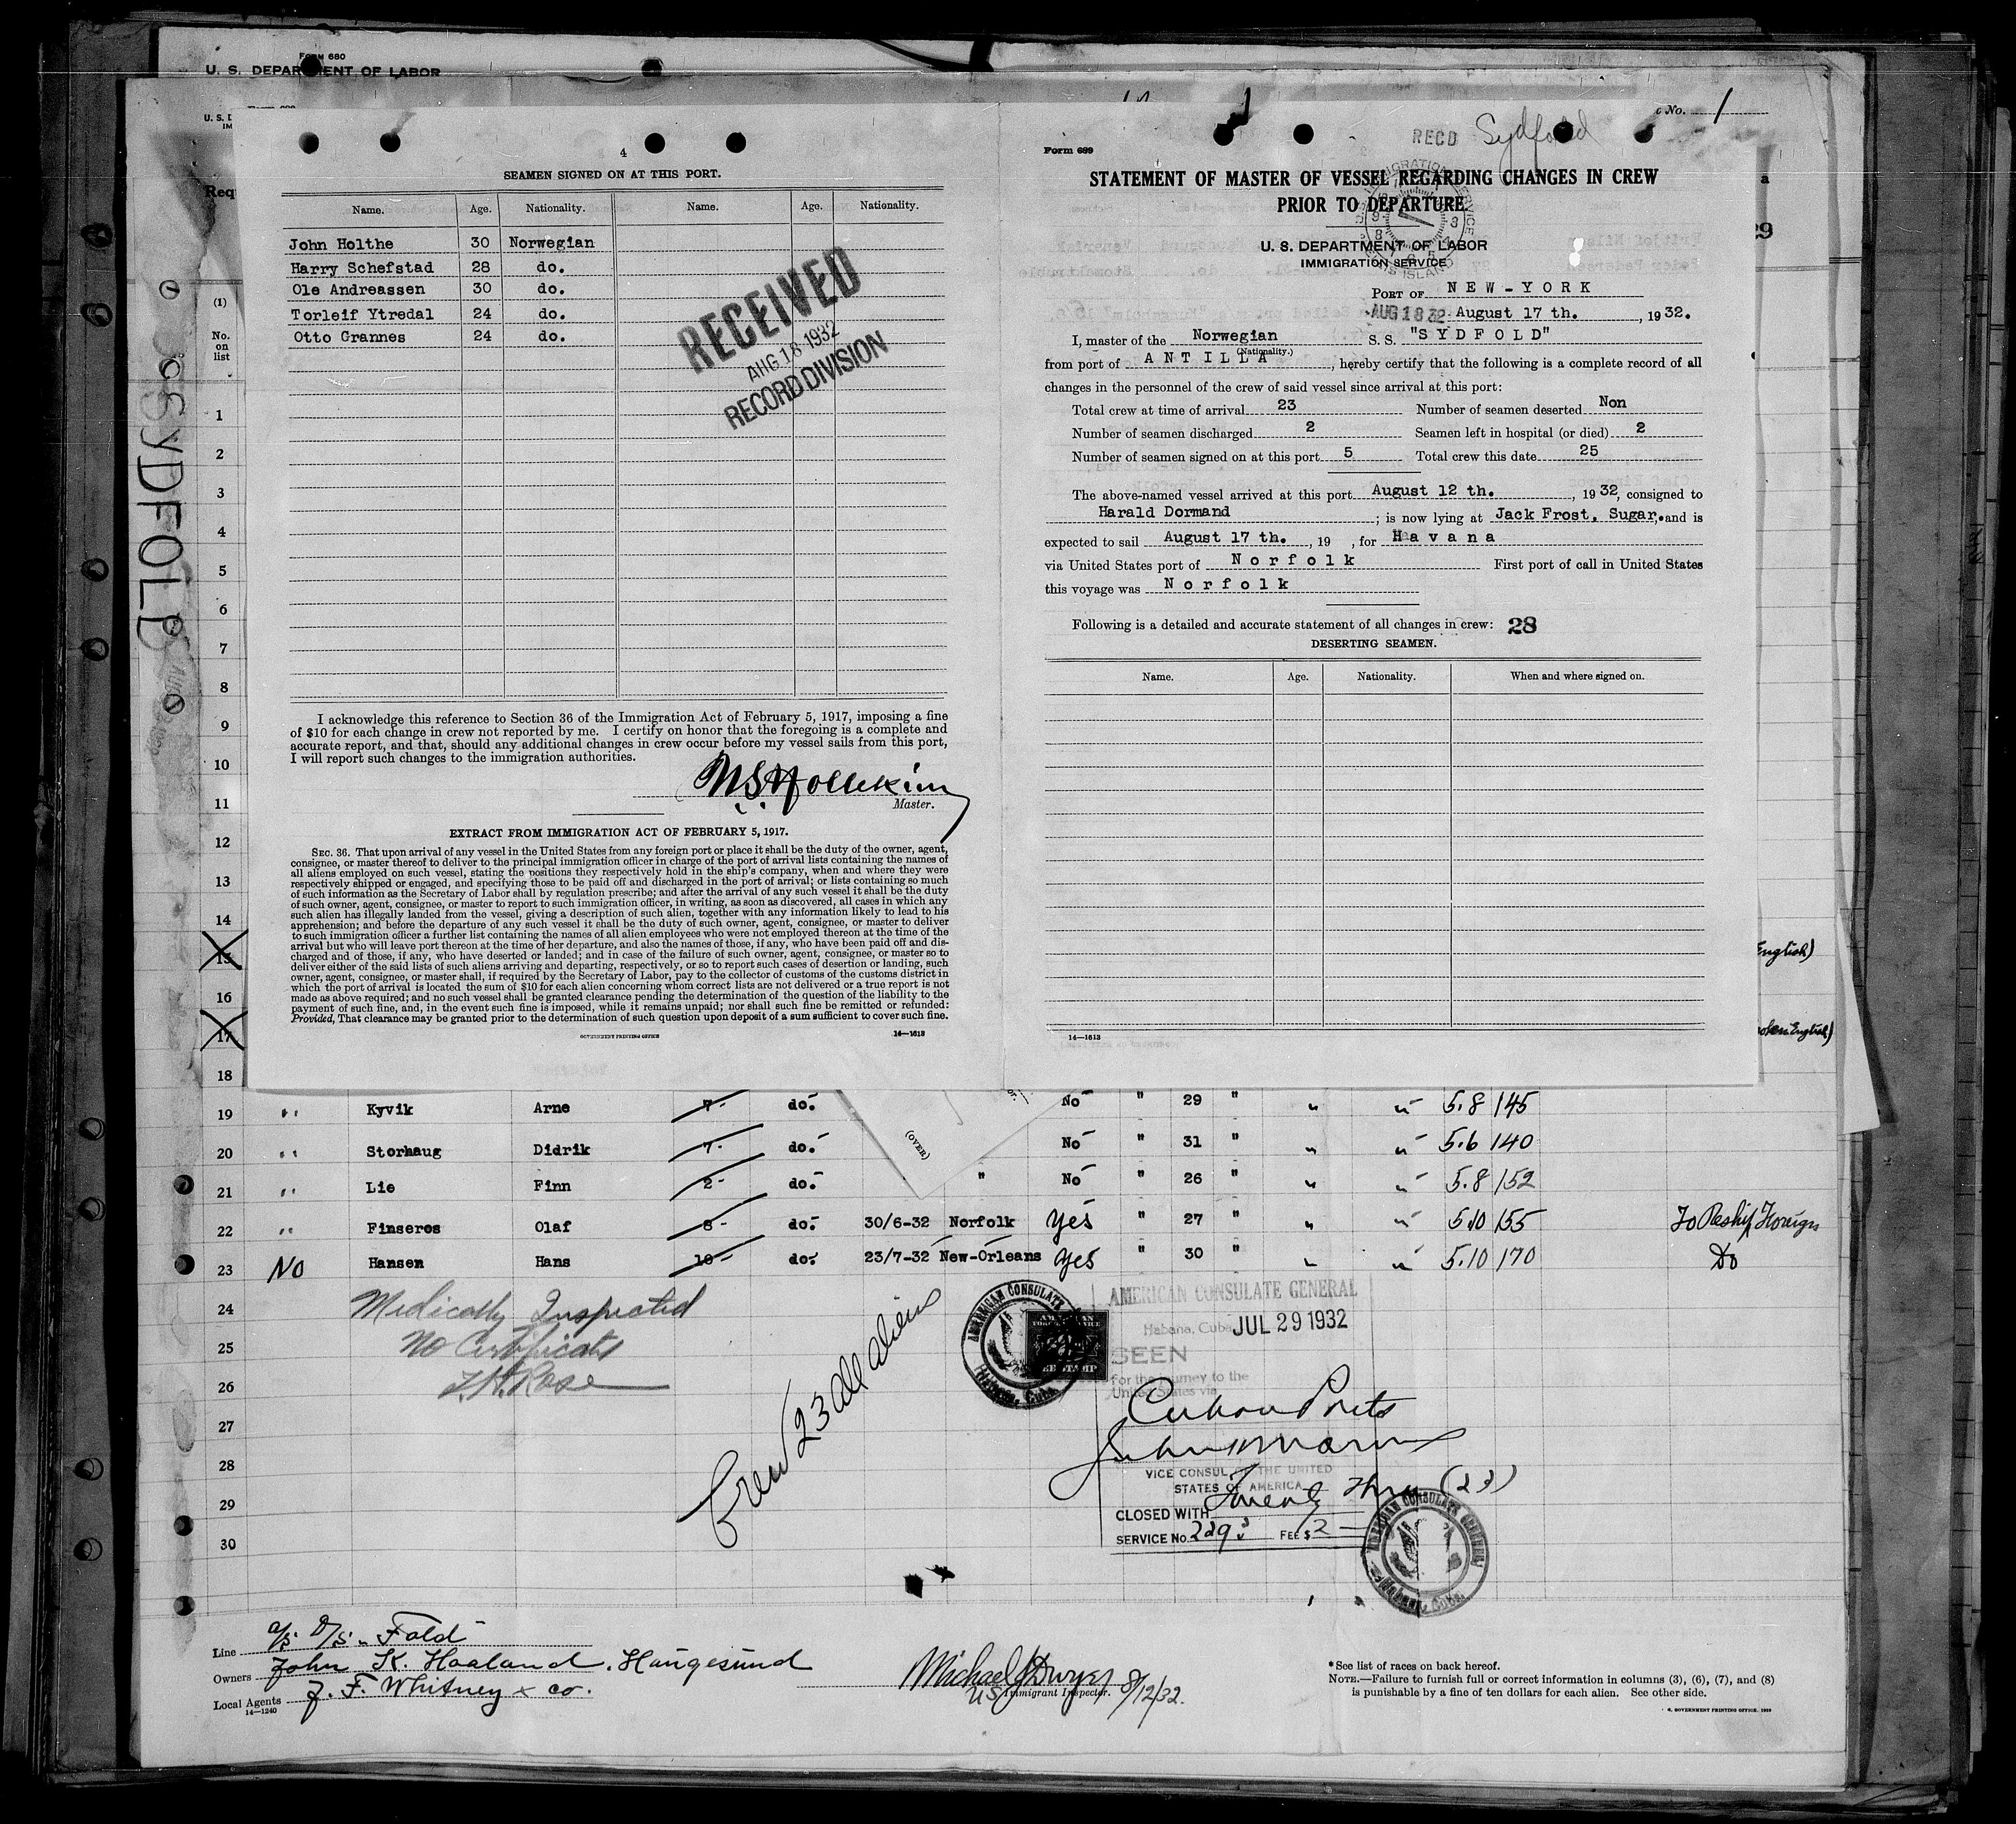 Form 680
U. S. DEPARTMENT OF LABOR
SYDFOLD
4
SEAMEN SIGNED ON AT THIS PORT.
Name. Age. Nationality. Name. Age. Nationality.
John Holthe 30 Norwegian
Harry Schefstad 28 do.
Ole Andreassen 30 do.
Torleif Ytredal 24 do.
Otto Grannes 24 do.
RECEIVED
AUG 18 1932
RECORD DIVISION
I acknowledge this reference to Section 36 of the Immigration Act of February 5, 1917, imposing a fine
of $10 for each change in crew not reported by me. I certify on honor that the foregoing is a complete and
accurate report, and that, should any additional changes in crew occur before my vessel sails from this port,
I will report such changes to the immigration authorities.
Master.
EXTRACT FROM IMMIGRATION ACT OF FEBRUARY 5, 1917.
SEC. 36. That upon arrival of any vessel in the United States from any foreign port or place it shall be the duty of the owner, agent,
consignee, or master thereof to deliver to the principal immigration officer in charge of the port of arrival lists containing the names of
all aliens employed on such vessel, stating the positions they respectively hold in the ship's company, when and where they were
respectively shipped or engaged, and specifying those to be paid off and discharged in the port of arrival; or lists containing so much
of such information as the Secretary of Labor shall by regulation prescribe; and after the arrival of any such vessel it shall be the duty
of such owner, agent, consignee, or master to report to such immigration officer, in writing, as soon as discovered, all cases in which any
such alien has illegally landed from the vessel, giving a description of such alien, together with any information likely to lead to his
apprehension; and before the departure of any such vessel it shall be the duty of such owner, agent, consignee, or master to deliver
to such immigration officer a further list containing the names of all alien employees who were not employed thereon at the time of the
arrival but who will leave port thereon at the time of her departure, and also the names of those, if any, who have been paid off and dis-
charged and of those, if any, who have deserted or landed; and in case of the failure of such owner, agent, consignee, or master so to
deliver either of the said lists of such aliens arriving and departing, respectively, or so to report such cases of desertion or landing, such
owner, agent, consignee, or master shall, if required by the Secretary of Labor, pay to the collector of customs of the customs district in
which the port of arrival is located the sum of $10 for each alien concerning whom correct lists are not delivered or a true report is not
made as above required; and no such vessel shall be granted clearance pending the determination of the question of the liability to the
payment of such fine, and, in the event such fine is imposed, while it remains unpaid; nor shall such fine be remitted or refunded:
Provided, That clearance may be granted prior to the determination of such question upon deposit of a sum sufficient to cover such fine.
GOVERNMENT PRINTING OFFICE 14—1613
No. 1
Form 689
RECD Sydfold
STATEMENT OF MASTER OF VESSEL REGARDING CHANGES IN CREW
PRIOR TO DEPARTURE.
U. S. DEPARTMENT OF LABOR
IMMIGRATION SERVICE
PORT OF NEW-YORK
AUG 18 32 August 17 th., 1932.
I, master of the Norwegian S. S. "SYDFOLD"
(Nationality.)
from port of ANTILLA, hereby certify that the following is a complete record of all
changes in the personnel of the crew of said vessel since arrival at this port:
Total crew at time of arrival 23 Number of seamen deserted Non
Number of seamen discharged 2 Seamen left in hospital (or died) 2
Number of seamen signed on at this port 5 Total crew this date 25
The above-named vessel arrived at this port August 12 th., 1932, consigned to
Harald Dormand; is now lying at Jack Frost, Sugar, and is
expected to sail August 17 th., 19 , for Havana
via United States port of Norfolk First port of call in United States
this voyage was Norfolk
Following is a detailed and accurate statement of all changes in crew: 28
DESERTING SEAMEN.
Name. Age. Nationality. When and where signed on.
14—1613
29
English)
(1)
No.
on
list
1
2
3
4
5
6
7
8
9
10
11
12
13
14
15
16
17
18
19 " Kyvik Arne 7- do. No " 29 " " " 5.8 145
20 " Storhaug Didrik 7- do. No " 31 " " " 5.6 140
21 " Lie Finn 2- do. " No " 26 " " " 5.8 152
22 " Finseros Olaf 8- do. 30/6-32 Norfolk Yes " 27 " " " 5.10 155 To Reship Foreign
23 No Hansen Hans 10- do. 23/7-32 New-Orleans Yes " 30 " " " 5.10 170 Do
(OVER)
24
25
26
27
28
29
30
Medically Inspected
No Certificate
Crew 23 all aliens
AMERICAN CONSULATE GENERAL
Habana, Cuba JUL 29 1932
SEEN
for the journey to the
United States via
Cuban Ports
VICE CONSUL OF THE UNITED
STATES OF AMERICA
CLOSED WITH Twenty three (23)
SERVICE No. FEE $ 2 —
AMERICAN CONSULATE
Habana, Cuba
AMERICAN CONSULATE GENERAL
Habana, Cuba
Line A/S D/S. Fold
Owners John K. Haaland, Haugesund
Local Agents J. F. Whitney & co.
14—1240
Michael J Dwyer 8/12/32.
US Immigrant Inspector.
*See list of races on back hereof.
NOTE.—Failure to furnish full or correct information in columns (3), (6), (7), and (8)
is punishable by a fine of ten dollars for each alien. See other side.